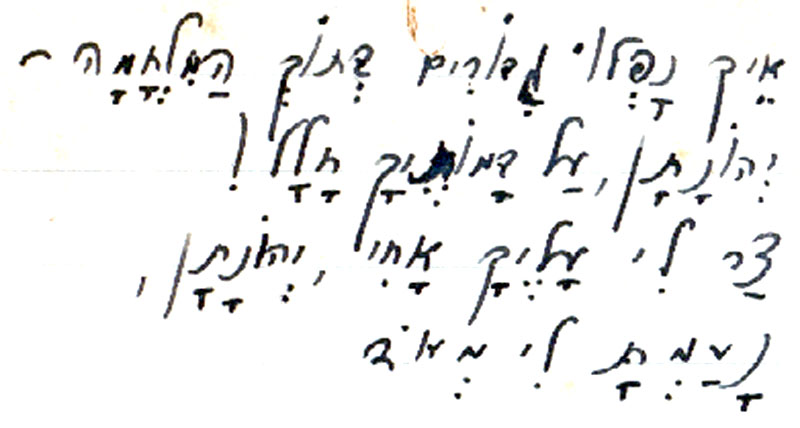 אֵיךְ נָפְלוּ גִבּוֹרִים בְּתוֹךְ הַמִּלְחָמָה –
יְהוֹנָתָן, עַל בָּמוֹתֶיךָ חָלָל!
צַר לִי עָלֶיךָ אָחִי, יְהוֹנָתָן,
נָעַמְתָּ לִי מְאֹד